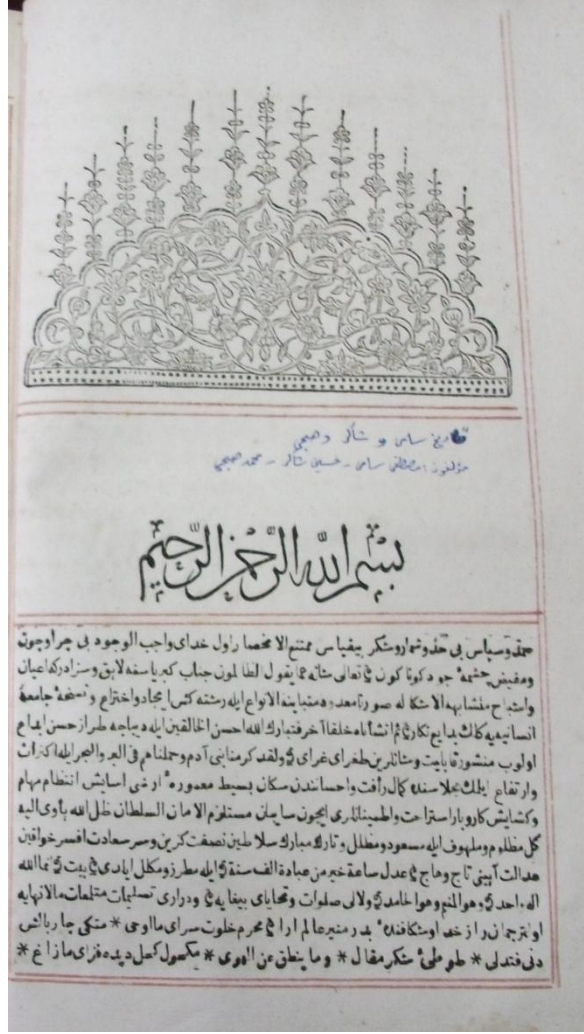 تاریخ سامی و شاکر و صبحی
مؤلفون : مصطفی سامی - حسین شاکر - محمد صبحی
بسم الله الرحمن الرحيم
حمد و سپاس بی حد و شمار و شکر بیقیاس ممتنع الانحصار اول خدای واجب الوجود بی چرا و چون
و مفیض چشمهٔ جود کونا کون تعالی شانه عما یقول الظالمون جناب کبریاسنه لایق و سزادر که اعیان
و اشباح متشابهة الاشکاله صورنا معدود متباینة الانواع ایله رشته کش ایجاد و اختراع و نسخهٔ جامعهٔ
انسانیه یه کلك بدایع نکاری ثم انشأناه خلقا آخر فتبارك الله احسن الخالقین ایله دیباجه طراز حسن ابداع
اولوب منشور قابلیت و شانلرین طغرای غرای ولقد کرمنا بنی آدم و حملناهم فی البر والبحر ایله
و ارتفاع کمال رأفت و احسانندن سکان بسیط معمورهٔ ارضی اسایش انتظام مهام
و کشایش کاروبار استراحت و اطمینانلری ایچون سایبان مستلزم الامان السلطان ظل الله یأوی الیه
کل مظلوم و ملهوف ایله مسعود و مظلل و تارك مبارك سلاطین نصفت کزین و سر سعادت افسر خواقین
عدالت آیینی تاج وهاج عدل ساعة خیر من عبادة الف سنة ایله مطرز و مکلل
وهو المنعم وهو الحامد و لالی صلوات و تحایای بیغایه و دراری تسلیمات مالانهایه
اول ترجمان راز بدر منیر عالم ارا محرم خلوت سرای ما اوحی * متکی چاربالش
دنی فتدلی * طوطیٔ شکر مقال * وما ینطق عن الهوی * مکحول کحل دیده فزای ما زاغ *